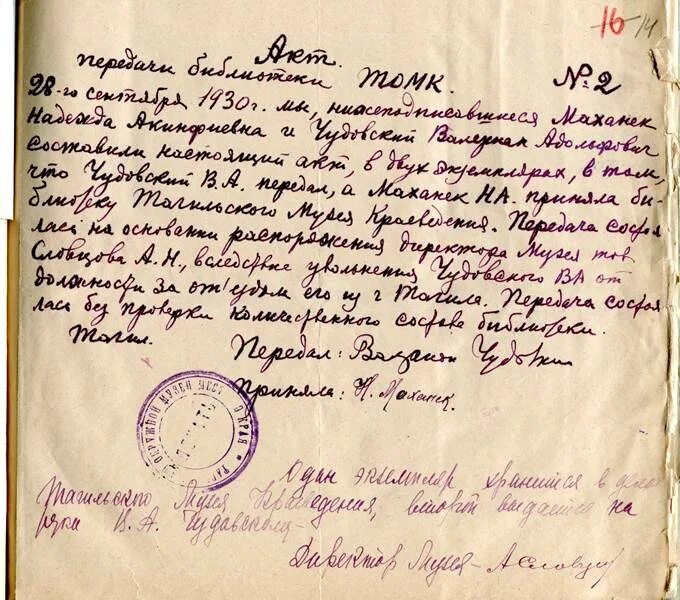 16 14
Акт.
передачи библиотеки ТОМК. № 2
28-го сентября 1930 г. мы, нижеподписавшиеся Маханек
Надежда Акинфиевна и Чудовский Валериан Адольфович
составили настоящий акт, в двух экземплярах, в том,
что Чудовский В.А. передал, а Маханек Н.А. приняла би-
блиотеку Тагильского Музея Краеведения. Передача состоя
лась на основании распоряжения директора Музея тов
Словцова А.Н., вследствие увольнения Чудовского ВА от
должности за от'ездом его из г Тагила. Передача состоя
лась без проверки количественного состава библиотеки.
Тагил. Передал: Валериан Чудовский
Приняла: Н. Маханек.
ОКРУЖНОЙ МУЗЕЙ МЕСТ О КРАЯ ТАГ
Один экземпляр хранится в делах
Тагильского Музея Краеведения, второй выдается на
руки В. А. Чудовскому
Директор Музея - АСловцов